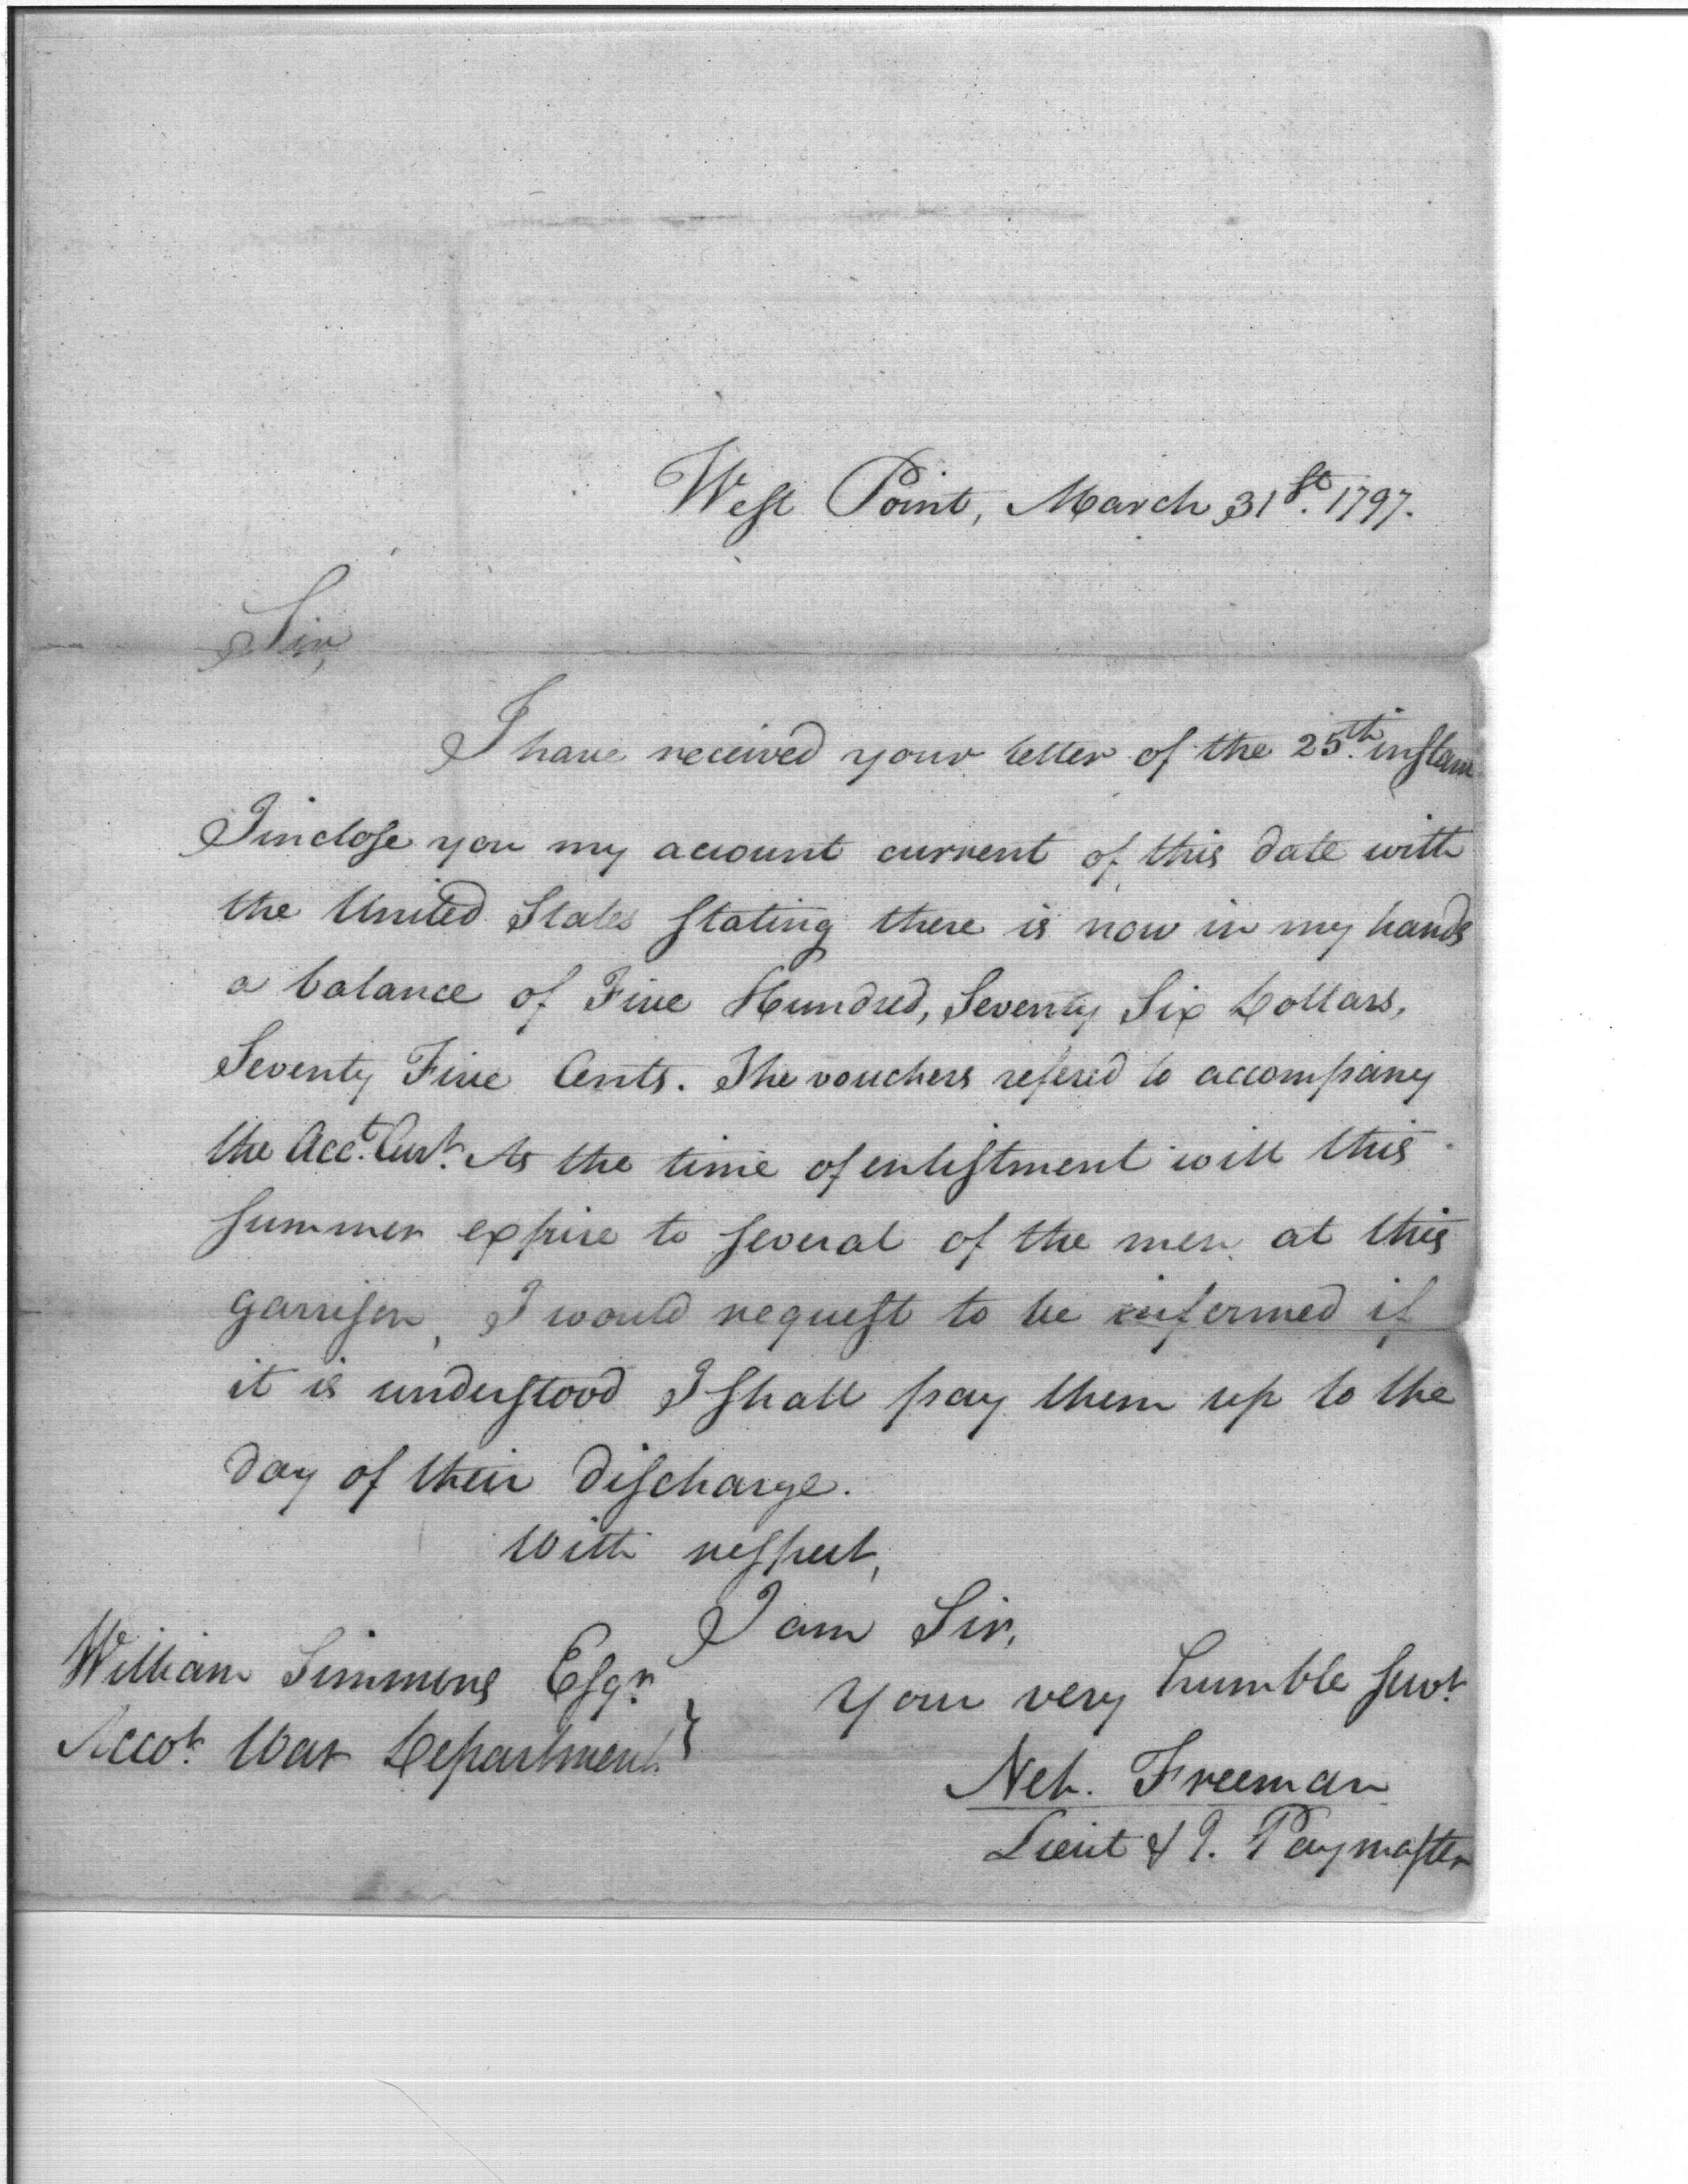 West Point, March 31st. 1797.
Sir,
I have received your letter of the 25th. instan
I inclose you my account current of this date with
the United States stating there is now in my hands
a balance of Five Hundred, Seventy Six Dollars,
Seventy Five Cents. The vouchers refered to accompany
the Acct. Curt. As the time of enlistment will this
summer expire to several of the men at this
garrison, I would request to be informed if
it is understood I shall pay them up to the
day of their discharge.
With respect,
I am Sir,
Your very humble servt.
William Simmons Esqr.
Accot. War Department
Neh. Freeman
Lieut & P. Paymaster